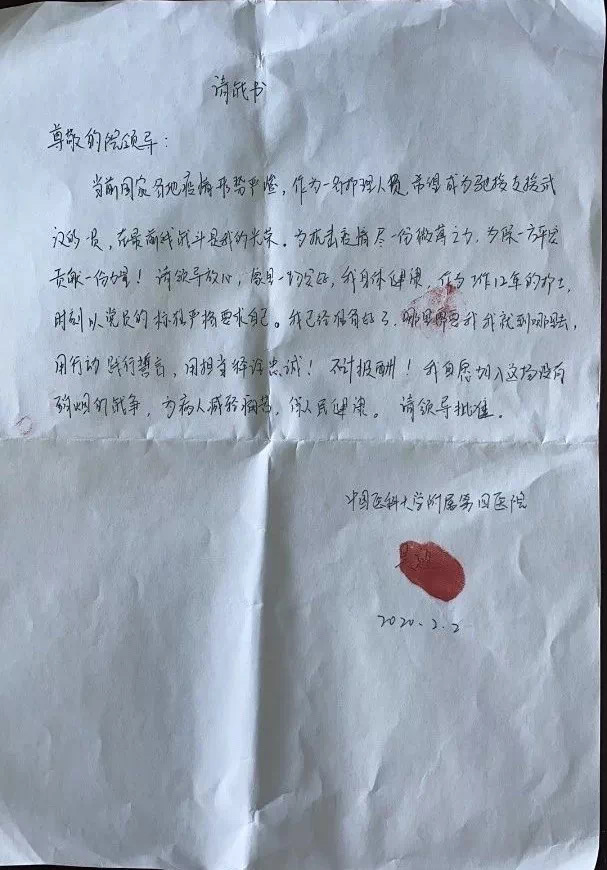 请战书
尊敬的院领导：
当前国家各地疫情形势严峻，作为一名护理人员，希望成为驰援支援武
汉的一员，在最前线战斗是我的光荣。为抗击疫情尽一份微薄之力，为保一方平安
贡献一份力量！请领导放心，家里一切安好，我身体健康，作为工作12年的护士，
时刻以党员的标准严格要求自己。我已经准备好了，哪里需要我我就到哪里去，
用行动践行誓言，用担当诠释忠诚！不计报酬！我自愿加入这场没有
硝烟的战争，为病人减轻病苦，保人民健康。请领导批准。
中国医科大学附属第四医院
2020.2.2